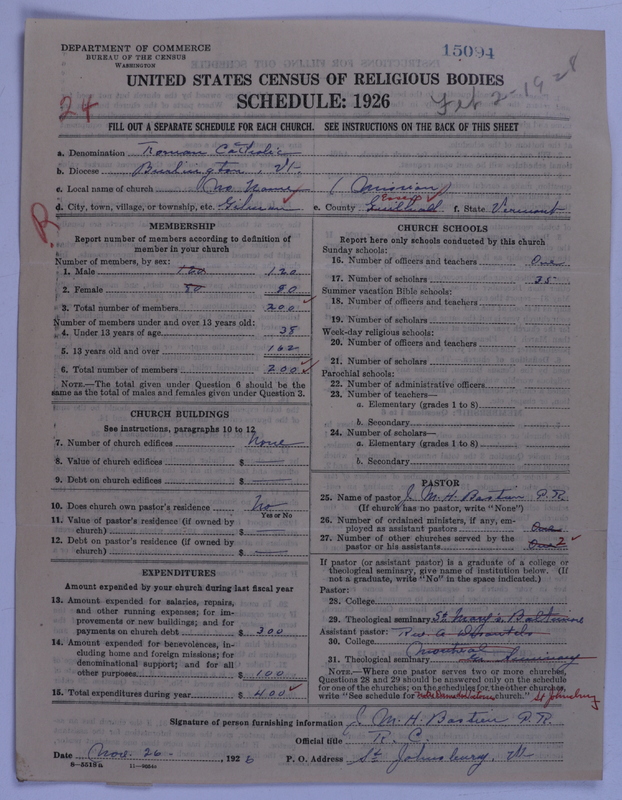 DEPARTMENT OF COMMERCE
BUREAU OF THE CENSUS
WASHINGTON
15094
Feb 2-1928
UNITED STATES CENSUS OF RELIGIOUS BODIES
SCHEDULE: 1926
24
FILL OUT A SEPARATE SCHEDULE FOR EACH CHURCH. SEE INSTRUCTIONS ON THE BACK OF THIS SHEET
a. Denomination Roman Catholic
b. Diocese Burlington, Vt.
c. Local name of church (No Name) (Mission)
d. City, town, village, or township, etc. Gilman e. County Essex Guildhall f. State Vermont
R
MEMBERSHIP
Report number of members according to definition of
member in your church
Number of members, by sex:
1. Male 120
2. Female 80 80
3. Total number of members 200
Number of members under and over 13 years old:
4. Under 13 years of age 38
5. 13 years old and over 162
6. Total number of members 200
NOTE.—The total given under Question 6 should be the
same as the total of males and females given under Question 3.
CHURCH BUILDINGS
See instructions, paragraphs 10 to 12
7. Number of church edifices None
8. Value of church edifices $
9. Debt on church edifices $
10. Does church own pastor's residence No
Yes or No
11. Value of pastor's residence (if owned by
church) $
12. Debt on pastor's residence (if owned by
church) $
EXPENDITURES
Amount expended by your church during last fiscal year
13. Amount expended for salaries, repairs,
and other running expenses; for im-
provements or new buildings; and for
payments on church debt $ 300
14. Amount expended for benevolences, in-
cluding home and foreign missions; for
denominational support; and for all
other purposes $ 100
15. Total expenditures during year $ 400
CHURCH SCHOOLS
Report here only schools conducted by this church
Sunday schools:
16. Number of officers and teachers One
17. Number of scholars 35
Summer vacation Bible schools:
18. Number of officers and teachers
19. Number of scholars
Week-day religious schools:
20. Number of officers and teachers
21. Number of scholars
Parochial schools:
22. Number of administrative officers
23. Number of teachers—
a. Elementary (grades 1 to 8)
b. Secondary
24. Number of scholars—
a. Elementary (grades 1 to 8)
b. Secondary
PASTOR
25. Name of pastor J. M. H. Bastien P.R.
(If church has no pastor, write "None")
26. Number of ordained ministers, if any, em-
ployed as assistant pastors One
27. Number of other churches served by the
pastor or his assistants 2
If pastor (or assistant pastor) is a graduate of a college or
theological seminary, give name of institution below. (If
not a graduate, write "No" in the space indicated.)
Pastor:
28. College
29. Theological seminary St. Mary's Baltimore
Assistant pastor: Rev A
30. College Montreal
31. Theological seminary Seminary
NOTE.—Where one pastor serves two or more churches,
Questions 28 and 29 should be answered only on the schedule
for one of the churches; on the schedules for the other churches,
write "See schedule for church." St Johnsbury
Signature of person furnishing information J. M. H. Bastien P.R.
Official title R. C.
Date Nov. 26 1926 P. O. Address St Johnsbury, Vt
8—5518a